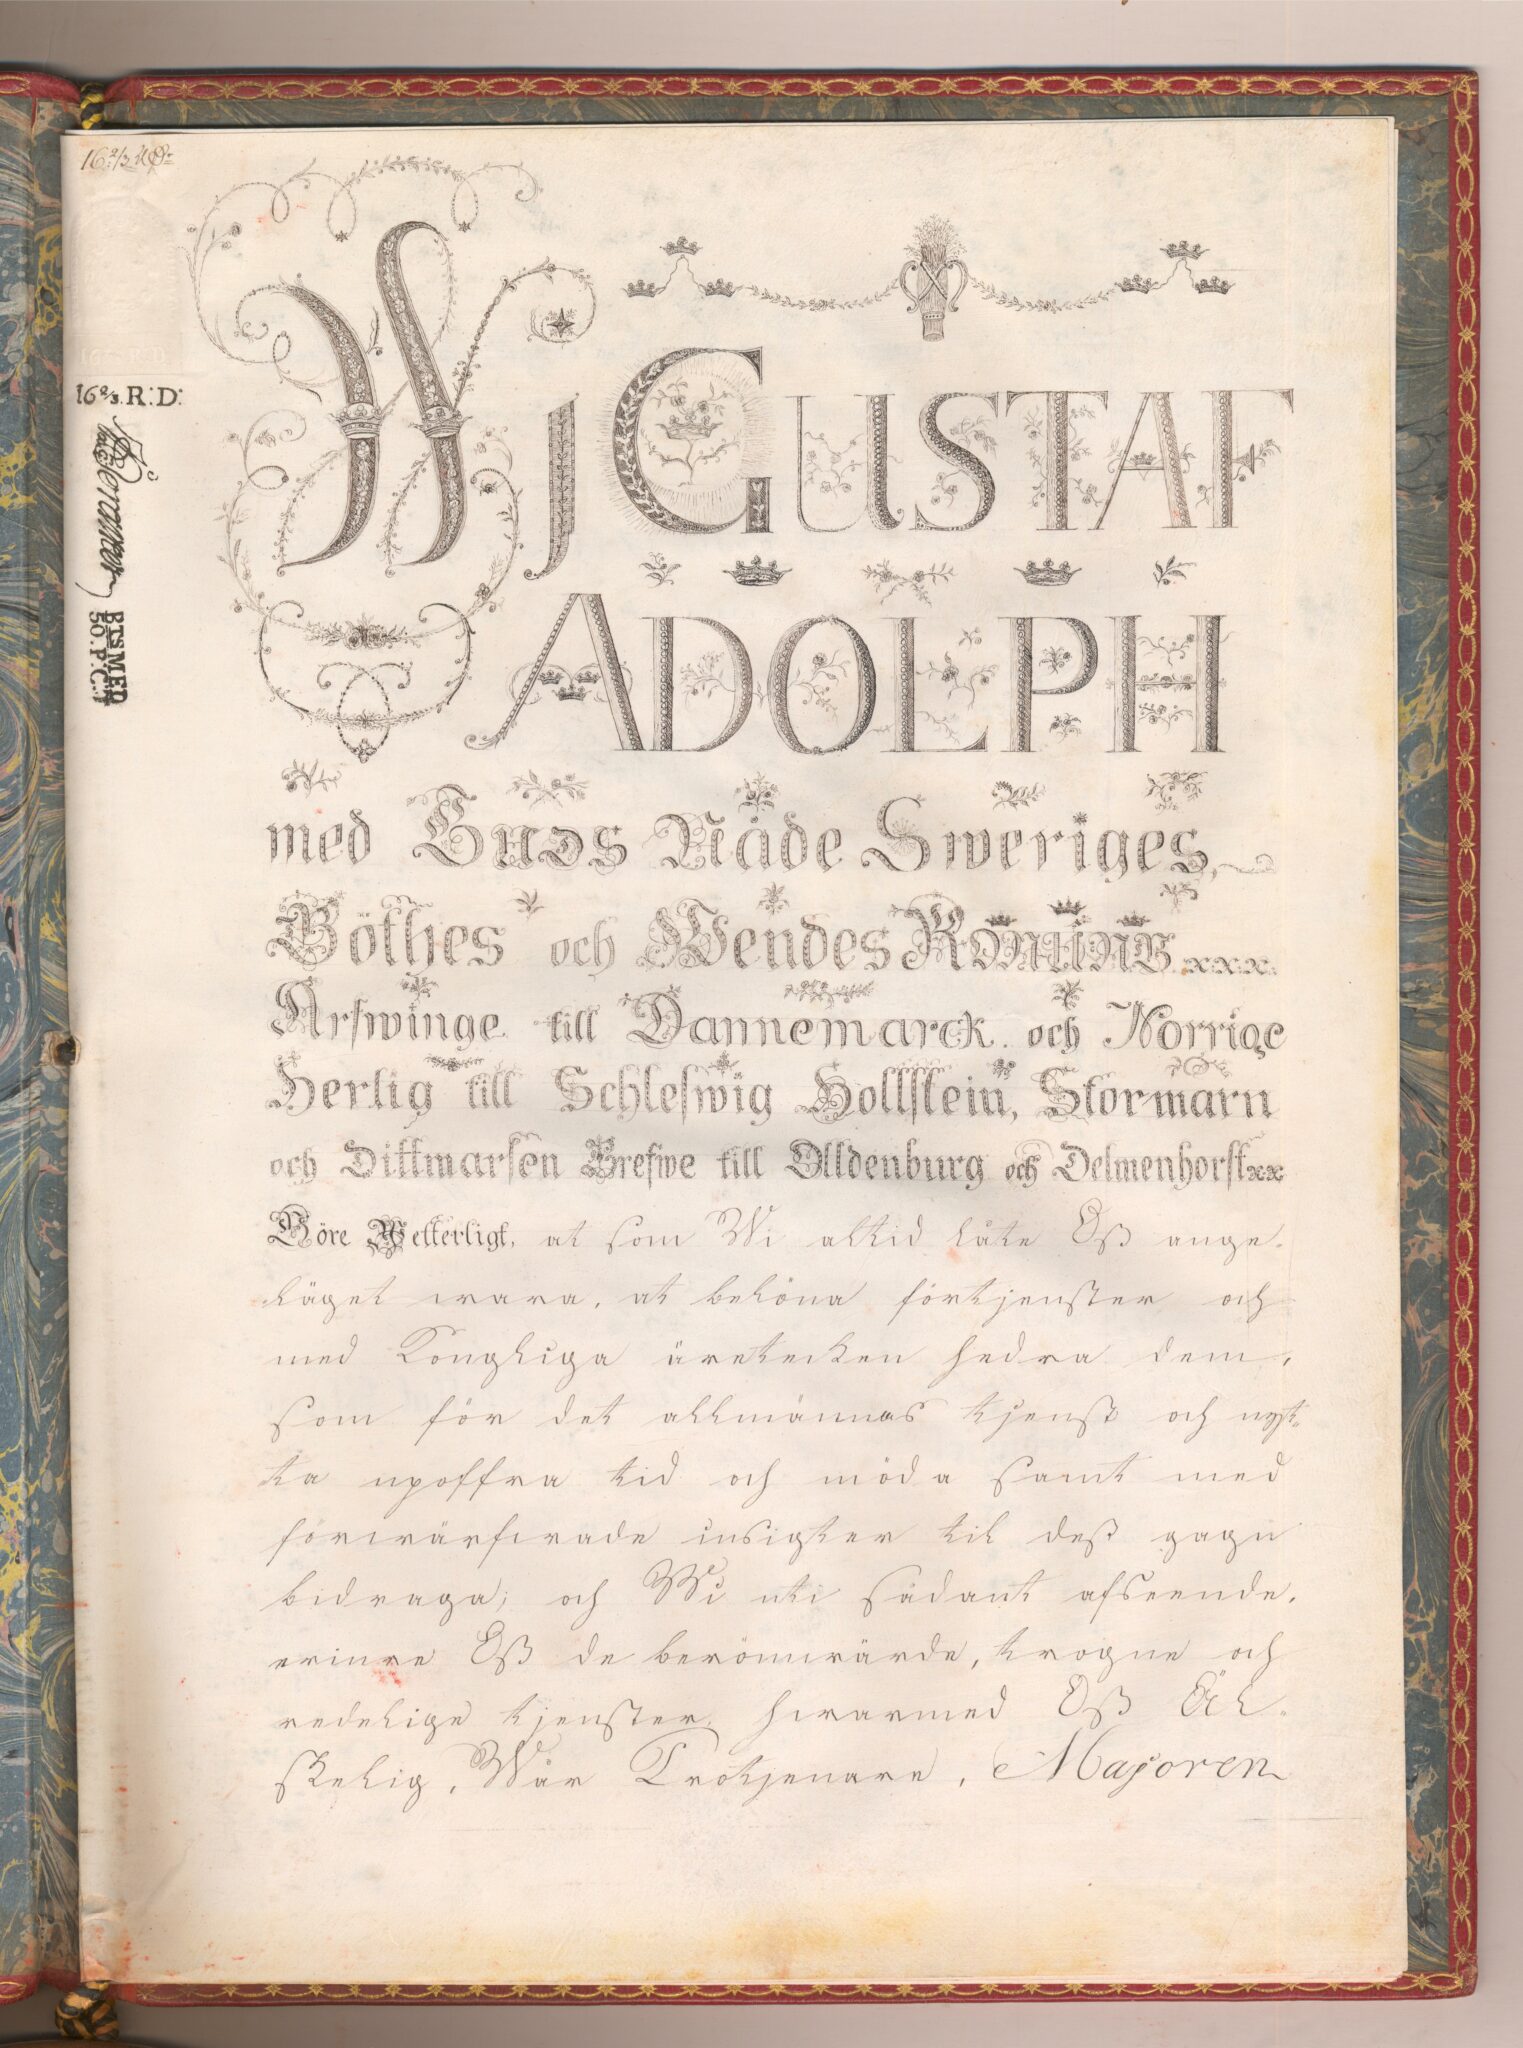 16 2/3 RD:
16 2/3. R:D:
BTSMLED
50.P.C.
Wj GUSTAF
ADOLPH
med Guds Nåde Sweriges,
Göthes och Wendes Konung xxx.
Arfwinge till Dannemarck och Norrige
Hertig till Schleswig Hollstein, Stormarn
och Dittmarsen Grefwe till Olldenburg och Delmenhorst xx
Göre Wetterligt, at som Wi altid låte Oß ange-
läget wara, at belöna förtjenster och
med Kongliga äretecken hedra dem,
som för det allmännas tjenst och nyt-
ta upoffra tid och möda samt med
förwärfwade insigter til deß gagn
bidraga; och Wi uti sådant afseende,
erinre Oß de berömwärde, trogne och
redelige tjenster, hwarmed Oß Äl-
skelig, Wår Trotjenare, Majoren